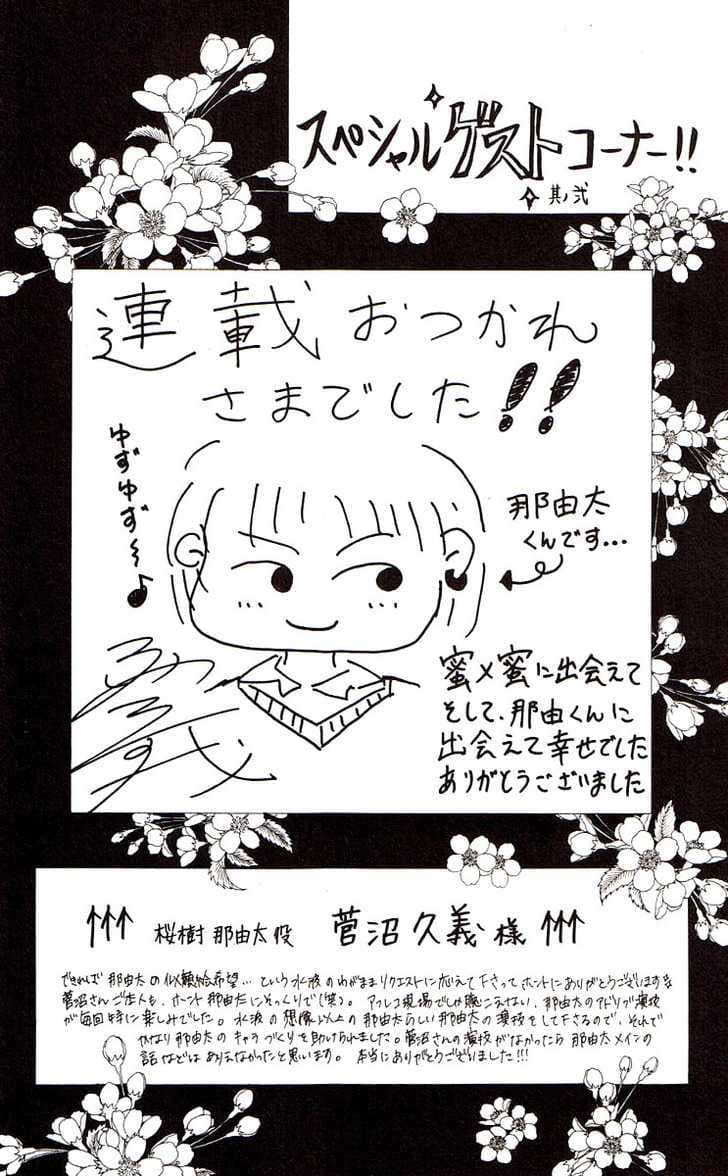 スペシャルゲストコーナー!!
其ノ弐
連載おつかれ
さまでした!!
ゆずゆず〜♪
那由太
くんです…
蜜×蜜に出会えて
そして、那由くんに
出会えて幸せでした
ありがとうございました
↑↑↑ 桜樹 那由太役 菅沼久義様 ↑↑↑
できれば 那由太の似顔絵希望…という水波のわがままリクエストに応えて下さってホントにありがとうございます
菅沼さんご本人も、ホント那由太にそっくりで(笑)。アフレコ現場でしか聴こえない、那由太のアドリブ演技
が毎回特に楽しみでした。水波の想像以上の那由太らしい那由太の演技をして下さるので、それで
かなり那由太のキャラづくりを助けられました。菅沼さんの演技がなかったら那由太メインの
話などはありえなかったと思います。本当にありがとうございました!!!